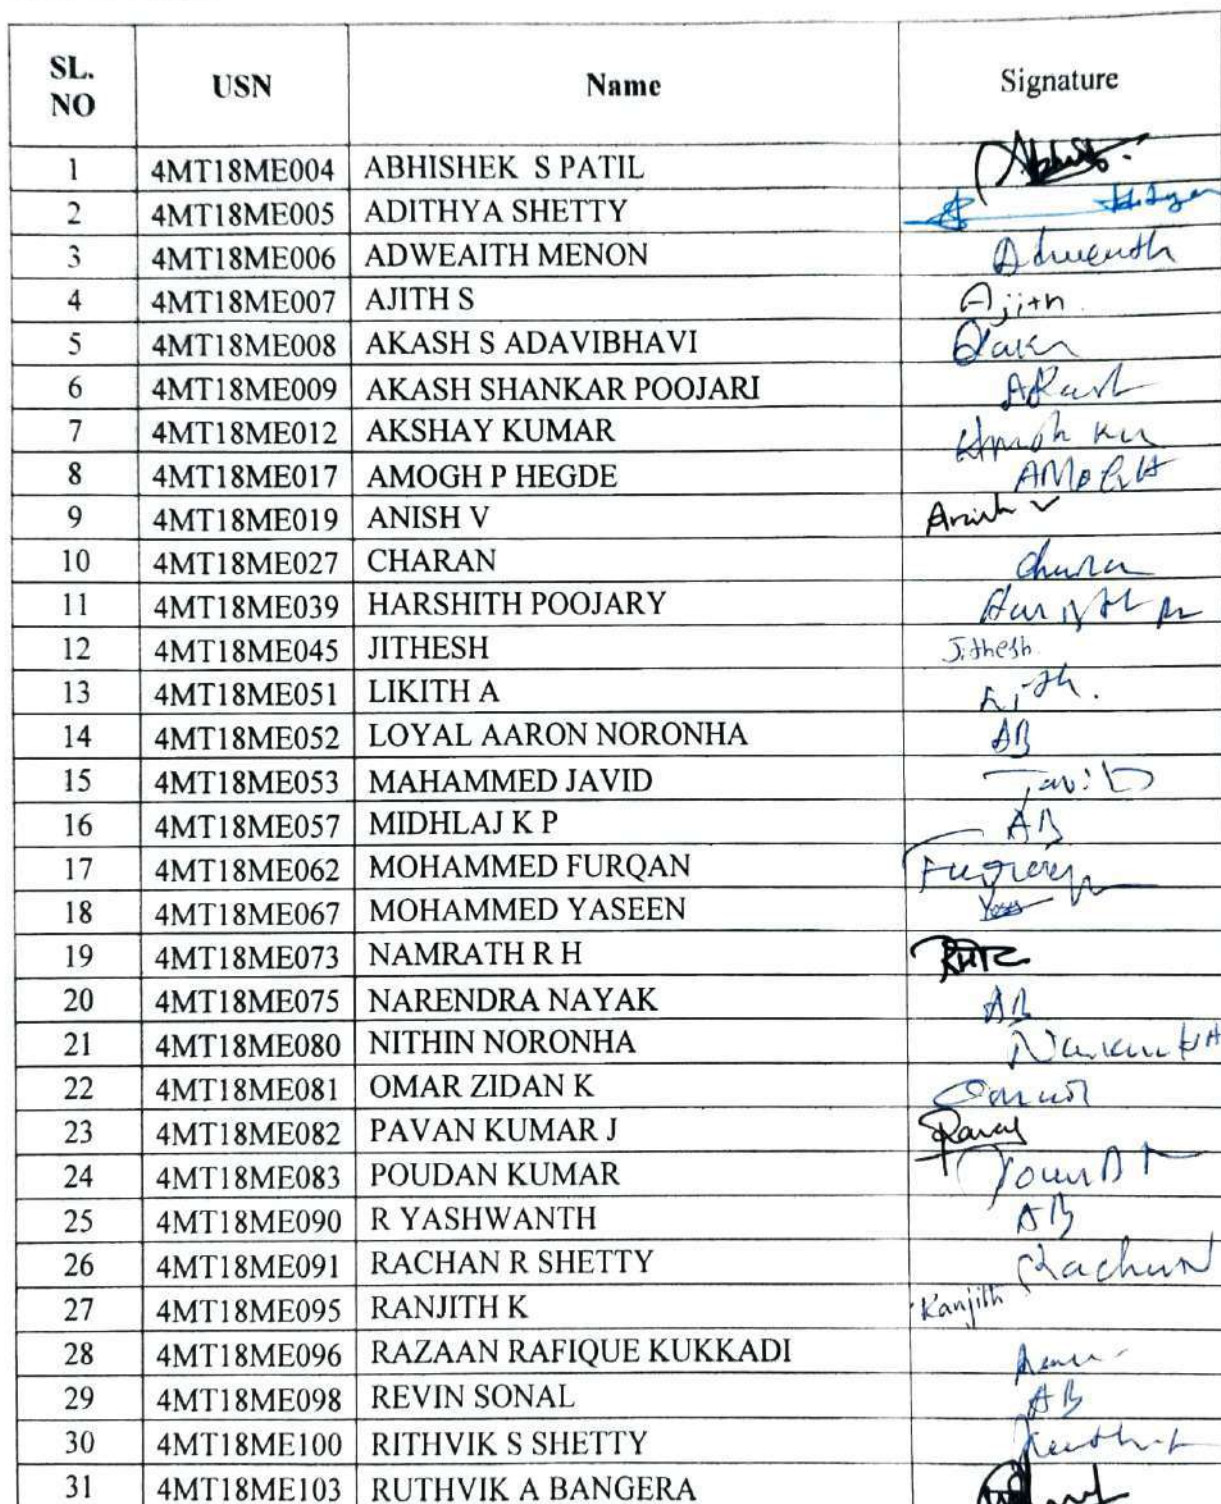 SL. NO USN Name Signature
1 4MT18ME004 ABHISHEK S PATIL
2 4MT18ME005 ADITHYA SHETTY
3 4MT18ME006 ADWEAITH MENON Adweaith
4 4MT18ME007 AJITH S Ajith
5 4MT18ME008 AKASH S ADAVIBHAVI
6 4MT18ME009 AKASH SHANKAR POOJARI Akash
7 4MT18ME012 AKSHAY KUMAR
8 4MT18ME017 AMOGH P HEGDE
9 4MT18ME019 ANISH V Anish V
10 4MT18ME027 CHARAN Charan
11 4MT18ME039 HARSHITH POOJARY
12 4MT18ME045 JITHESH Jithesh
13 4MT18ME051 LIKITH A
14 4MT18ME052 LOYAL AARON NORONHA AB
15 4MT18ME053 MAHAMMED JAVID Javid
16 4MT18ME057 MIDHLAJ K P AB
17 4MT18ME062 MOHAMMED FURQAN
18 4MT18ME067 MOHAMMED YASEEN
19 4MT18ME073 NAMRATH R H
20 4MT18ME075 NARENDRA NAYAK AB
21 4MT18ME080 NITHIN NORONHA
22 4MT18ME081 OMAR ZIDAN K
23 4MT18ME082 PAVAN KUMAR J
24 4MT18ME083 POUDAN KUMAR
25 4MT18ME090 R YASHWANTH AB
26 4MT18ME091 RACHAN R SHETTY Rachan
27 4MT18ME095 RANJITH K Ranjith
28 4MT18ME096 RAZAAN RAFIQUE KUKKADI
29 4MT18ME098 REVIN SONAL AB
30 4MT18ME100 RITHVIK S SHETTY
31 4MT18ME103 RUTHVIK A BANGERA